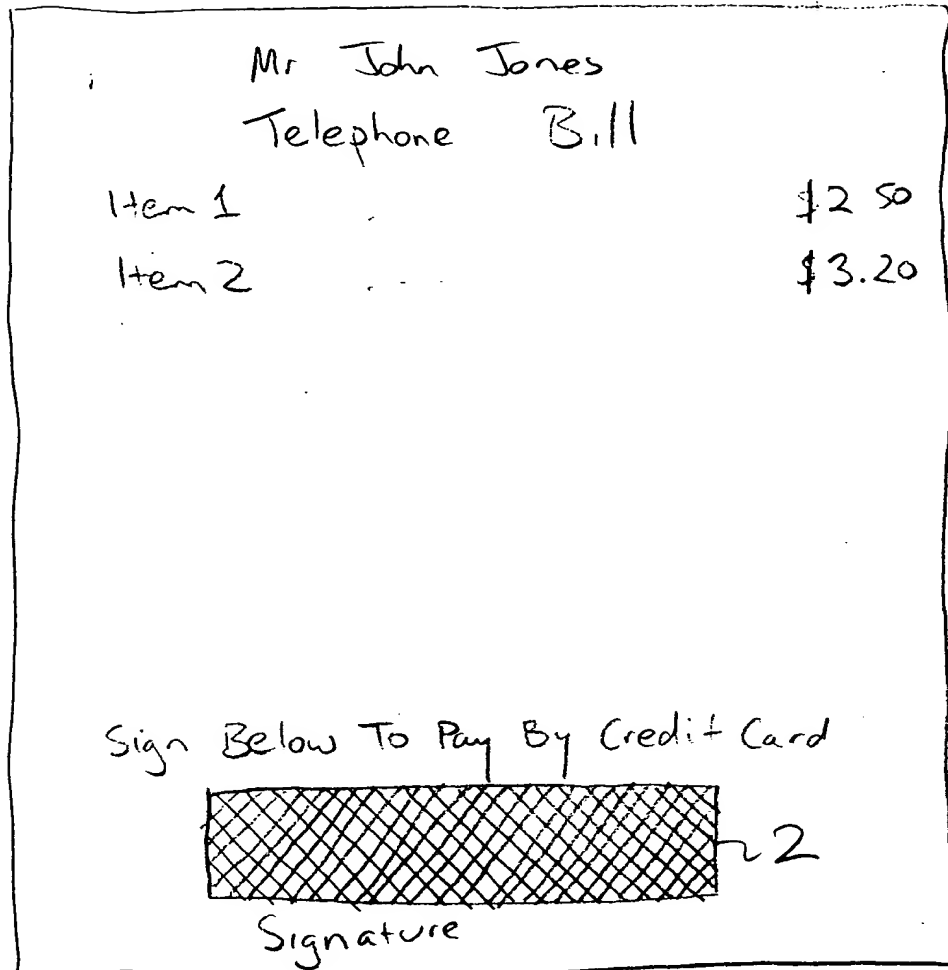 Mr John Jones
Telephone Bill
Item 1 $2 50
Item 2 ... $3.20
Sign Below To Pay By Credit Card
2
Signature